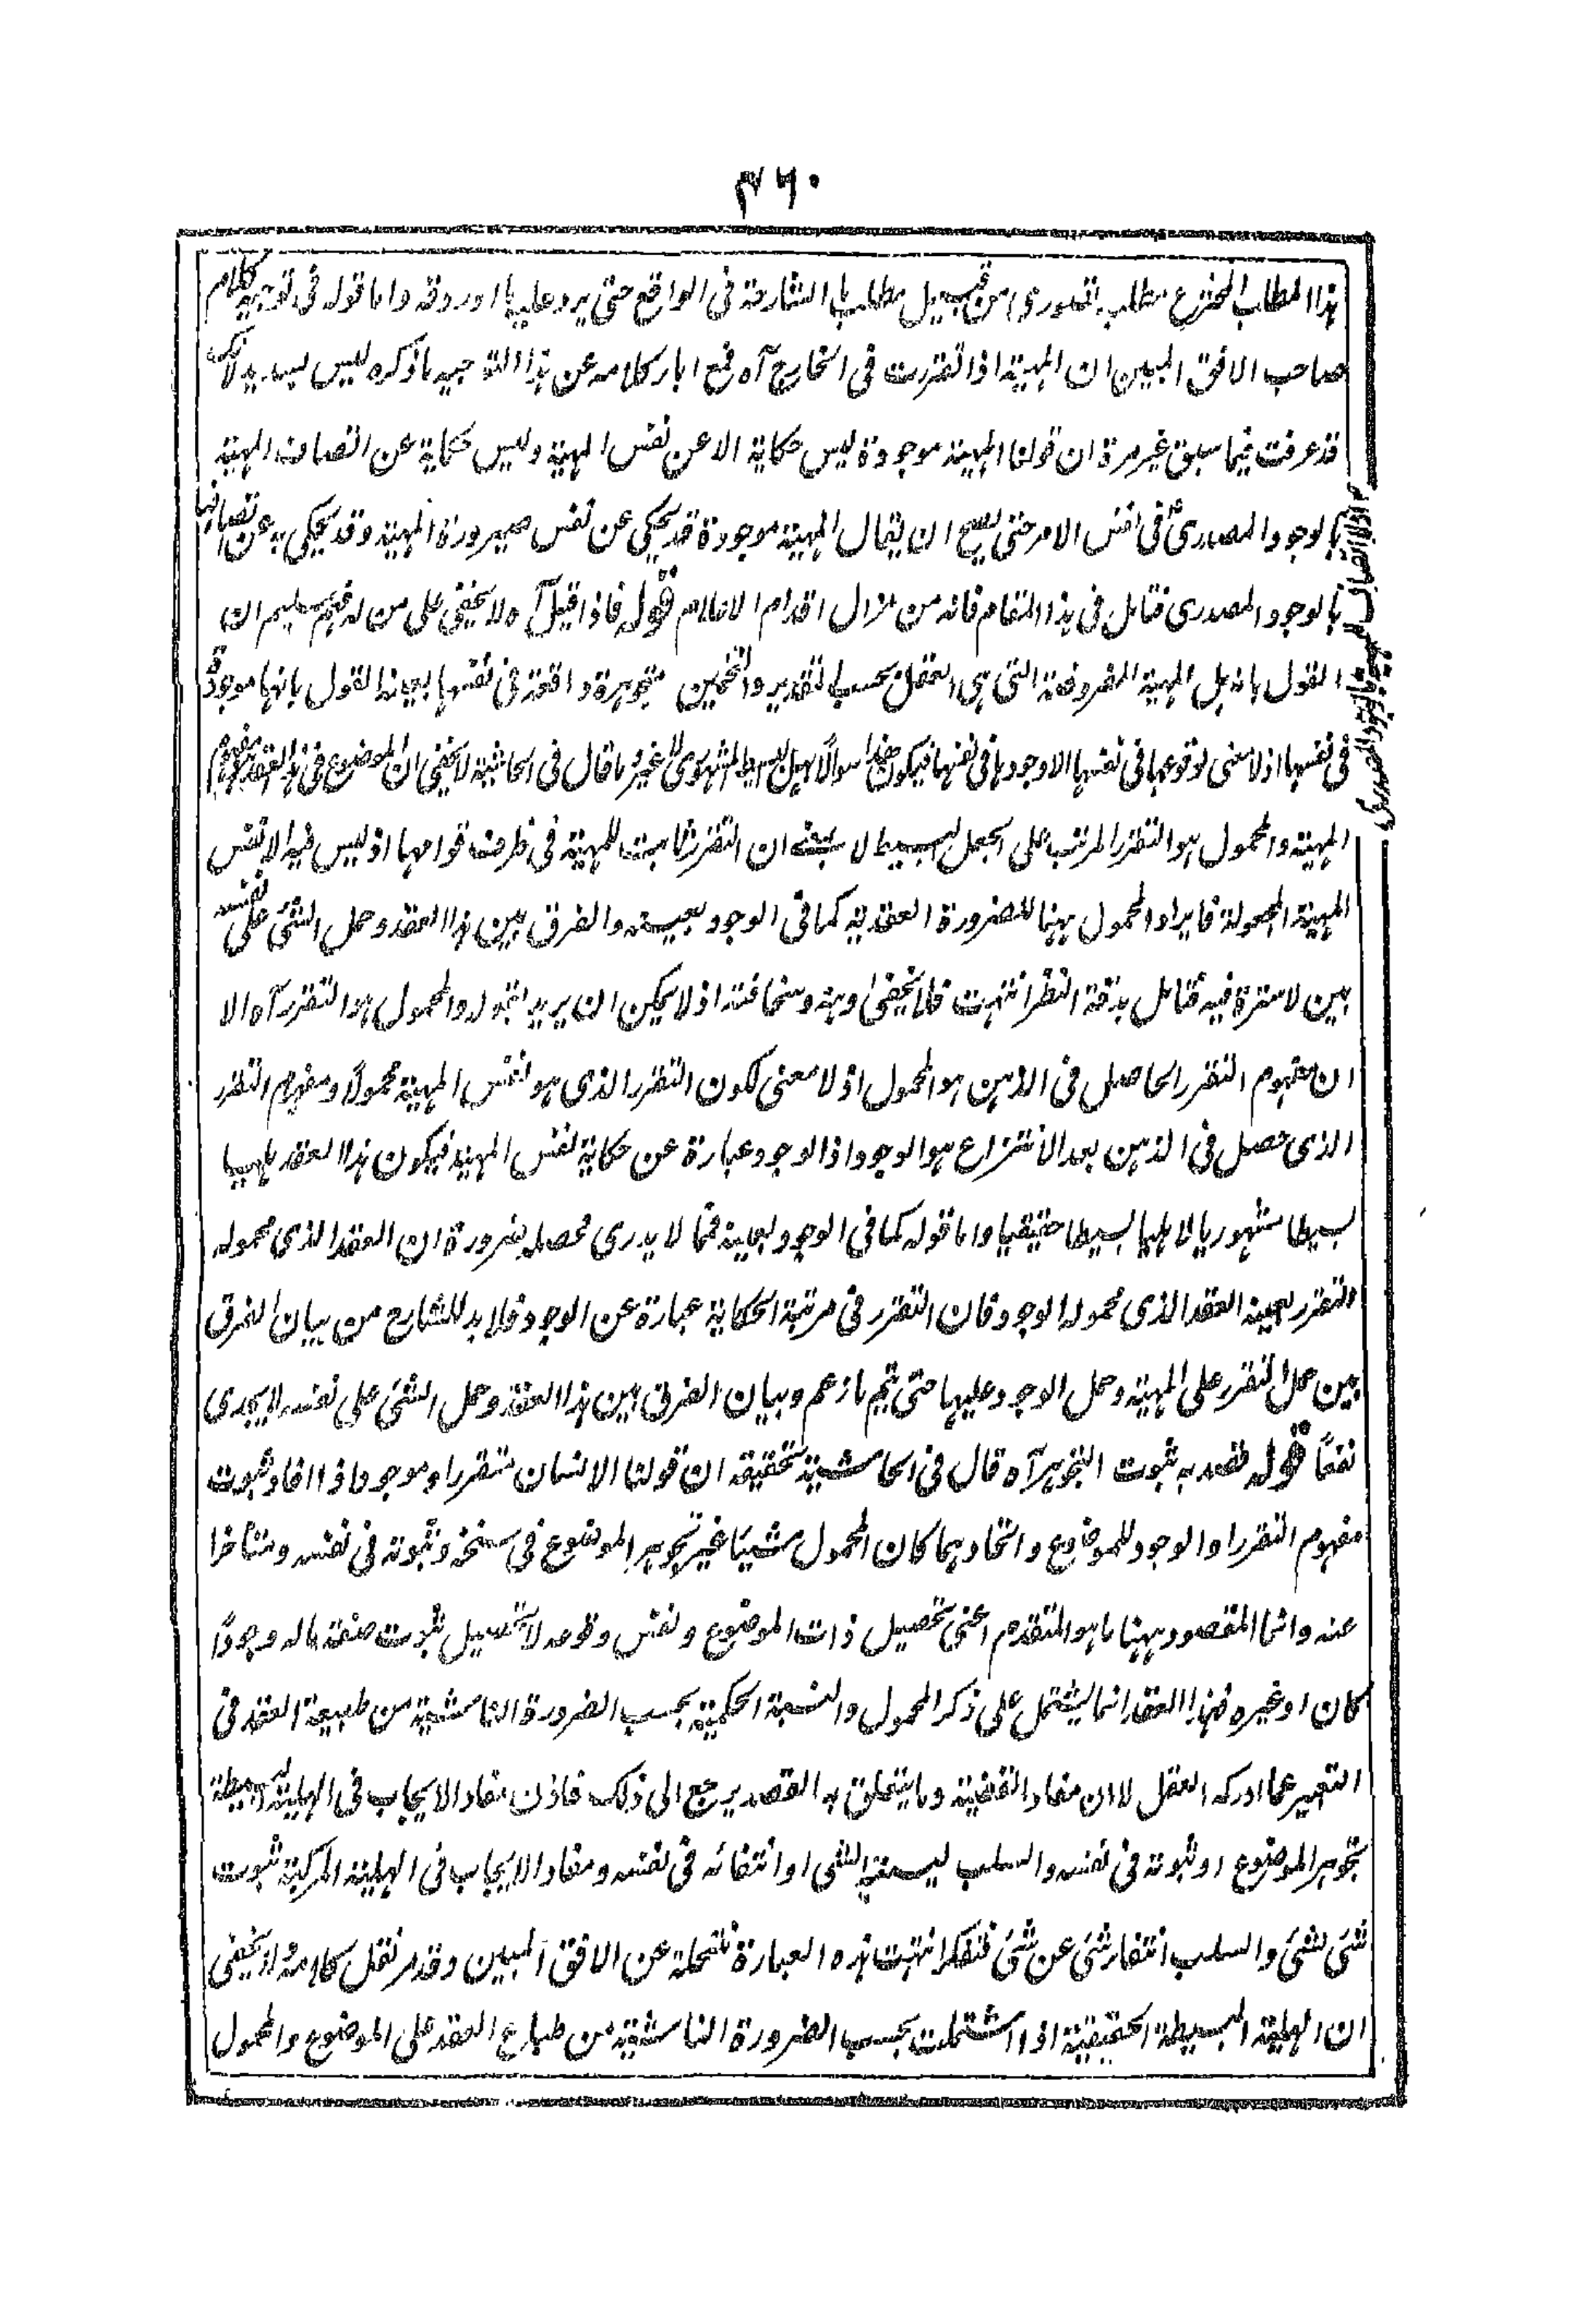 ٤٦٠
هذا المطلب المخترع مطلب تصوری من قبيل مطلب ما الشارحة فی الواقع حتی یرد علیه ما اورده واما قوله فی توجیه کلام
صاحب الافق المبین ان المهیة اذا تقررت فی الخارج آه فمع اباء کلامه عن هذا التوجیه ما ذکره لیس بسدید لانک
قد عرفت فیما سبق غیر مرة ان قولنا المهیة موجودة لیس حکایة الا عن نفس المهیة ولیس حکایة عن اتصاف المهیة
بالوجود المصدری فی نفس الامر حتی یصح ان یقال المهیة موجودة قد یحکی عن نفس صیرورة المهیة وقد یحکی به عن اتصافها
بالوجود المصدری فتامل فی هذا المقام فانه من مزال اقدام الاعلام قوله فاذا قیل آه لا یخفی علی من له فهم سلیم ان
القول بانه هل المهیة المفروضة التی هی العقل بحسب التقدیر والتخمین متجوهرة واقعة فی نفسها بعینه القول بانها موجودة
فی نفسها اذ لا معنی لوقوعها فی نفسها الا وجودها فی نفسها فیکون هذا سوالا بهل البسیط المشهوری لا غیر وما قال فی الحاشیة لا یخفی ان الموضوع فی هذا العقد مفهوم
المهیة والمحمول هو التقرر المرتب علی الجعل البسیط لا بمعنی ان التقرر ثابت للمهیة فی ظرف قوامها اذ لیس فیه الا نفس
المهیة المجعولة فایراد المحمول ههنا للضرورة العقدیة کما فی الوجود بعینه والفرق بین هذا العقد وحمل الشیٔ علی نفسه
بین لا سترة فیه فتامل بدقة النظر انتهت فلا یخفی وهنه وسخافته اذ لا یمکن ان یرید بقوله والمحمول هو التقرر آه الا
ان مفهوم التقرر الحاصل فی الذهن هو المحمول اذ لا معنی لکون التقرر الذی هو نفس المهیة محمولا ومفهوم التقرر
الذی حصل فی الذهن بعد الانتزاع هو الوجود اذ الوجود عبارة عن حکایة نفس المهیة فیکون هذا العقد هلیا
بسیطا مشهوریا لا هلیا بسیطا حقیقیا واما قوله کما فی الوجود بعینه فمما لا یدری محصله ضرورة ان العقد الذی محموله
التقرر بعینه العقد الذی محموله الوجود فان التقرر فی مرتبة الحکایة عبارة عن الوجود فلا بد للشارح من بیان الفرق
بین حمل التقرر علی المهیة وحمل الوجود علیها حتی یتم ما زعم وبیان الفرق بین هذا العقد وحمل الشیٔ علی نفسه لا یجدی
نفعا قوله فقصد به ثبوت التجوهر آه قال فی الحاشیة تحقیقه ان قولنا الانسان متقرر او موجود اذا افاد ثبوت
مفهوم التقرر او الوجود للموضوع واتحادهما کان المحمول شیئا غیر تجوهر الموضوع فی سنخه وثبوته فی نفسه ومتاخرا
عنه وانما المقصود ههنا ما هو المتقدم اعنی تحصیل ذات الموضوع ونفس وقوعه لا تحصیل ثبوت صفة ما له وجودا
کان او غیره فهذا العقد انما یشتمل علی ذکر المحمول والنسبة الحکمیة بحسب الضرورة الناشئیة من طبیعة العقد فی
التعبیر عما ادرکه العقل لا ان مفاد القضیة وما یتعلق به القصد یرجع الی ذلک فاذن مفاد الایجاب فی الهلیة البسیطة
تجوهر الموضوع او ثبوته فی نفسه والسلب لیسیة الشی او انتفائه فی نفسه ومفاد الایجاب فی الهلیة المرکبة ثبوت
شیٔ لشیٔ والسلب انتفاء شیٔ عن شیٔ فتفکر انتهت هذه العبارة منتحلة عن الافق المبین وقد مر نقل کلامه ولا یخفی
ان الهلیة البسیطة الحقیقیة اذا اشتملت بحسب الضرورة الناشئیة من طباع العقد علی الموضوع والمحمول